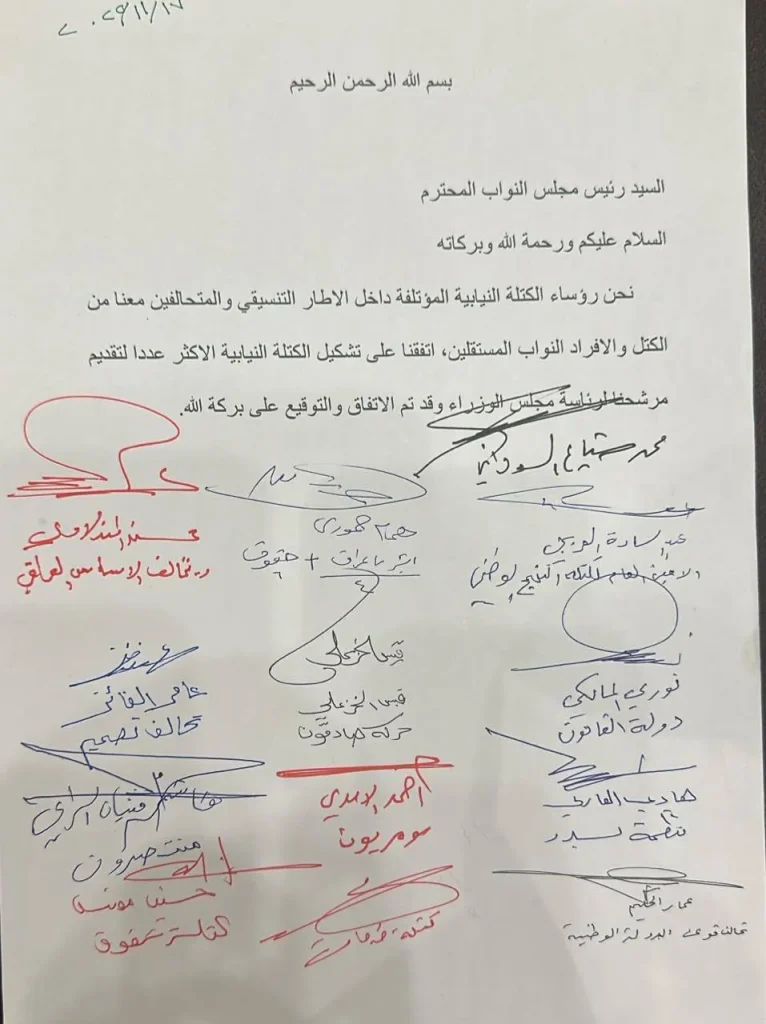 ٢٠٢٥/١١/١٧
بسم الله الرحمن الرحيم
السيد رئيس مجلس النواب المحترم
السلام عليكم ورحمة الله وبركاته
نحن رؤساء الكتلة النيابية المؤتلفة داخل الاطار التنسيقي والمتحالفين معنا من
الكتل والافراد النواب المستقلين، اتفقنا على تشكيل الكتلة النيابية الاكثر عددا لتقديم
مرشحنا لرئاسة مجلس الوزراء وقد تم الاتفاق والتوقيع على بركة الله.
محمد شياع السوداني
الامين العام
همام حمودي
ابشر يا عراق + حقوق
محسن المندلاوي
تحالف الاساس العراقي
نوري المالكي
دولة القانون
قيس الخزعلي
حركة صادقون
عامر الفائز
تحالف تصميم
هادي العامري
منظمة بدر
احمد الاسدي
سومريون
منتصرون
عمار الحكيم
تحالف قوى الدولة الوطنية
كتلة خدمات
حسين مونس